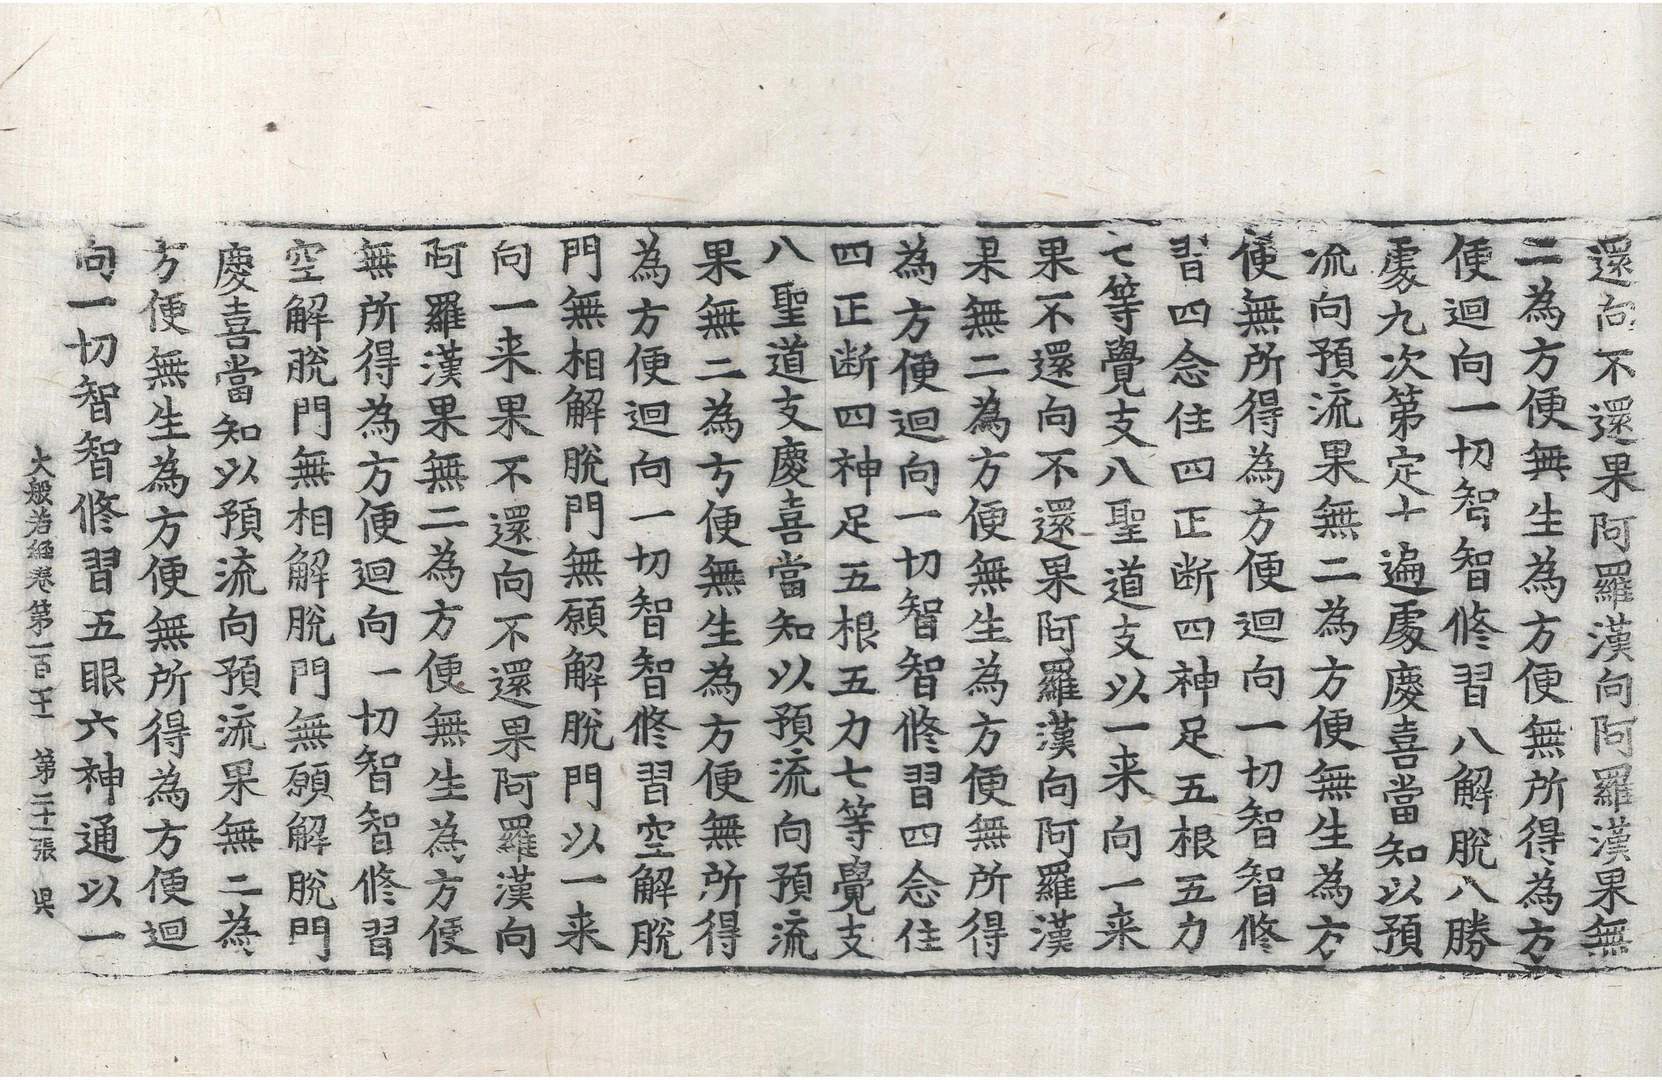 還向不還果阿羅漢向阿羅漢果無
二為方便無生為方便無所得為方
便迴向一切智智修習八解脫八勝
處九次第定十遍處慶喜當知以預
流向預流果無二為方便無生為方
便無所得為方便迴向一切智智修
習四念住四正断四神足五根五力
七等覺支八聖道支以一来向一来
果不還向不還果阿羅漢向阿羅漢
果無二為方便無生為方便無所得
為方便迴向一切智智修習四念住
四正断四神足五根五力七等覺支
八聖道支慶喜當知以預流向預流
果無二為方便無生為方便無所得
為方便迴向一切智智修習空解脫
門無相解脫門無願解脫門以一来
向一来果不還向不還果阿羅漢向
阿羅漢果無二為方便無生為方便
無所得為方便迴向一切智智修習
空解脫門無相解脫門無願解脫門
慶喜當知以預流向預流果無二為
方便無生為方便無所得為方便迴
向一切智智修習五眼六神通以一
大般若經卷第一百二十一 第二十一張 吳